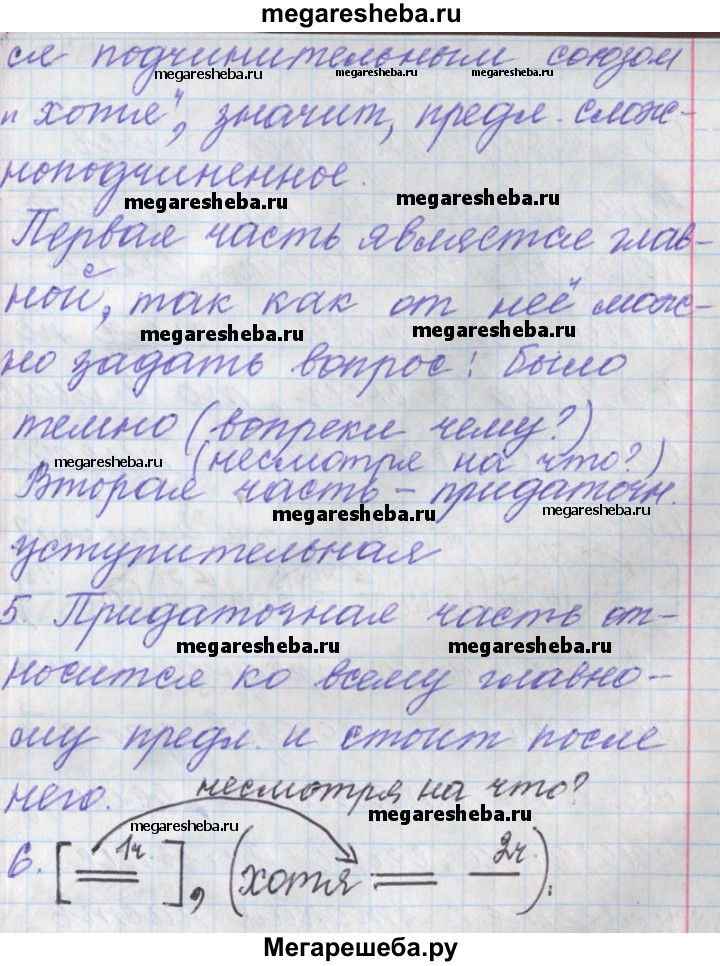 megaresheba.ru
ся подчинительным союзом
megaresheba.ru megaresheba.ru megaresheba.ru
„хотя", значит, предл. слож-
ноподчиненное.
megaresheba.ru megaresheba.ru
Первая часть является глав-
ной, так как от неё мож-
megaresheba.ru megaresheba.ru
но задать вопрос: было
темно (вопреки чему?)
megaresheba.ru (несмотря на что?)
Вторая часть – придаточн.
megaresheba.ru megaresheba.ru
уступительная
5. Придаточная часть от-
megaresheba.ru megaresheba.ru
носится ко всему главно-
му предл. и стоит после
него. несмотря на что?
megaresheba.ru megaresheba.ru
6. [ 1ч. ], (хотя 2ч.).
Мегарешеба.ру